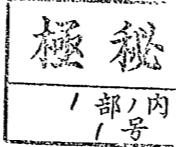 極秘
1部ノ内
1号